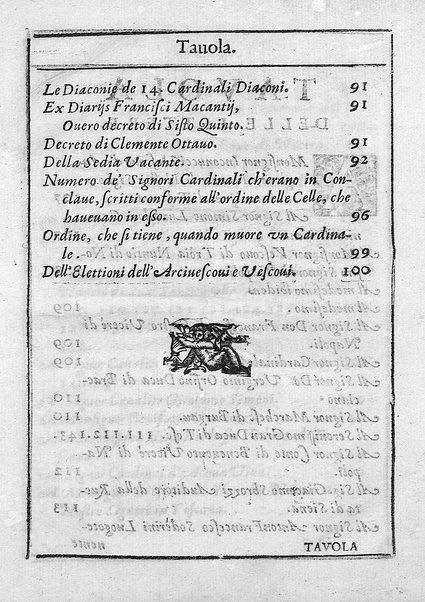 Tauola.
Le Diaconie de 14. Cardinali Diaconi. 91
Ex Diarijs Francisci Macantij, 91
Ouero decreto di Sisto Quinto.
Decreto di Clemente Ottauo. 91
Della Sedia Vacante. 92
Numero de' Signori Cardinali ch'erano in Con-
claue, scritti conforme all'ordine delle Celle, che
haueuano in esso. 96
Ordine, che si tiene, quando muore vn Cardina-
le. 99
Dell'Elettioni dell'Arciuescoui e Vescoui. 100
TAVOLA